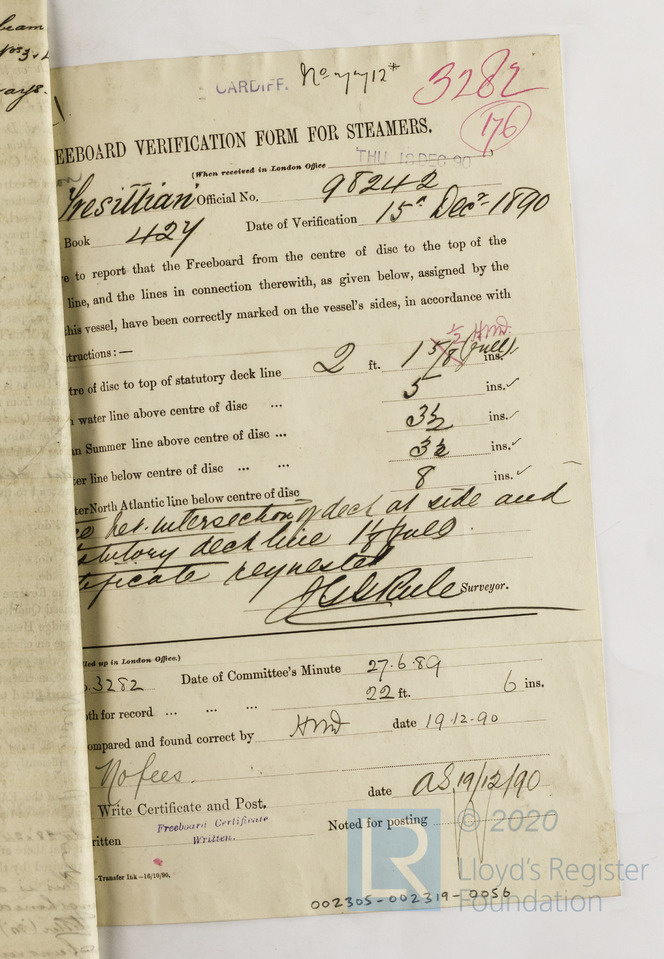 beam
nos 3 &
ays.
CARDIFF. No 7712*
3282
176
EEBOARD VERIFICATION FORM FOR STEAMERS.
(When received in London Office THU 18 DEC 90
Tresillian Official No. 98242
Book 427 Date of Verification 15th Decr 1890
e to report that the Freeboard from the centre of disc to the top of the
line, and the lines in connection therewith, as given below, assigned by the
this vessel, have been correctly marked on the vessel's sides, in accordance with
structions:—
1/2 HMD.
tre of disc to top of statutory deck line 2 ft. 1 5/8 (full) ins.
water line above centre of disc ... 5 ins. ✓
n Summer line above centre of disc ... 3½ ins. ✓
ter line below centre of disc ... ... 3½ ins. ✓
ter North Atlantic line below centre of disc 8 ins. ✓
ce bet. intersection of deck at side and
statutory deck line full
tificate requested
Surveyor.
lled up in London Office.)
o. 3282 Date of Committee's Minute 27.6.89
oth for record ... ... ... 22 ft. 6 ins.
ompared and found correct by HMD date 19.12.90
No fees.
Write Certificate and Post. date AS 19/12/90
ritten Freeboard Certificate Written. Noted for posting
—Transfer Ink—16/10/90.
LR © 2020
Lloyd's Register
Foundation
002305-002319-0056